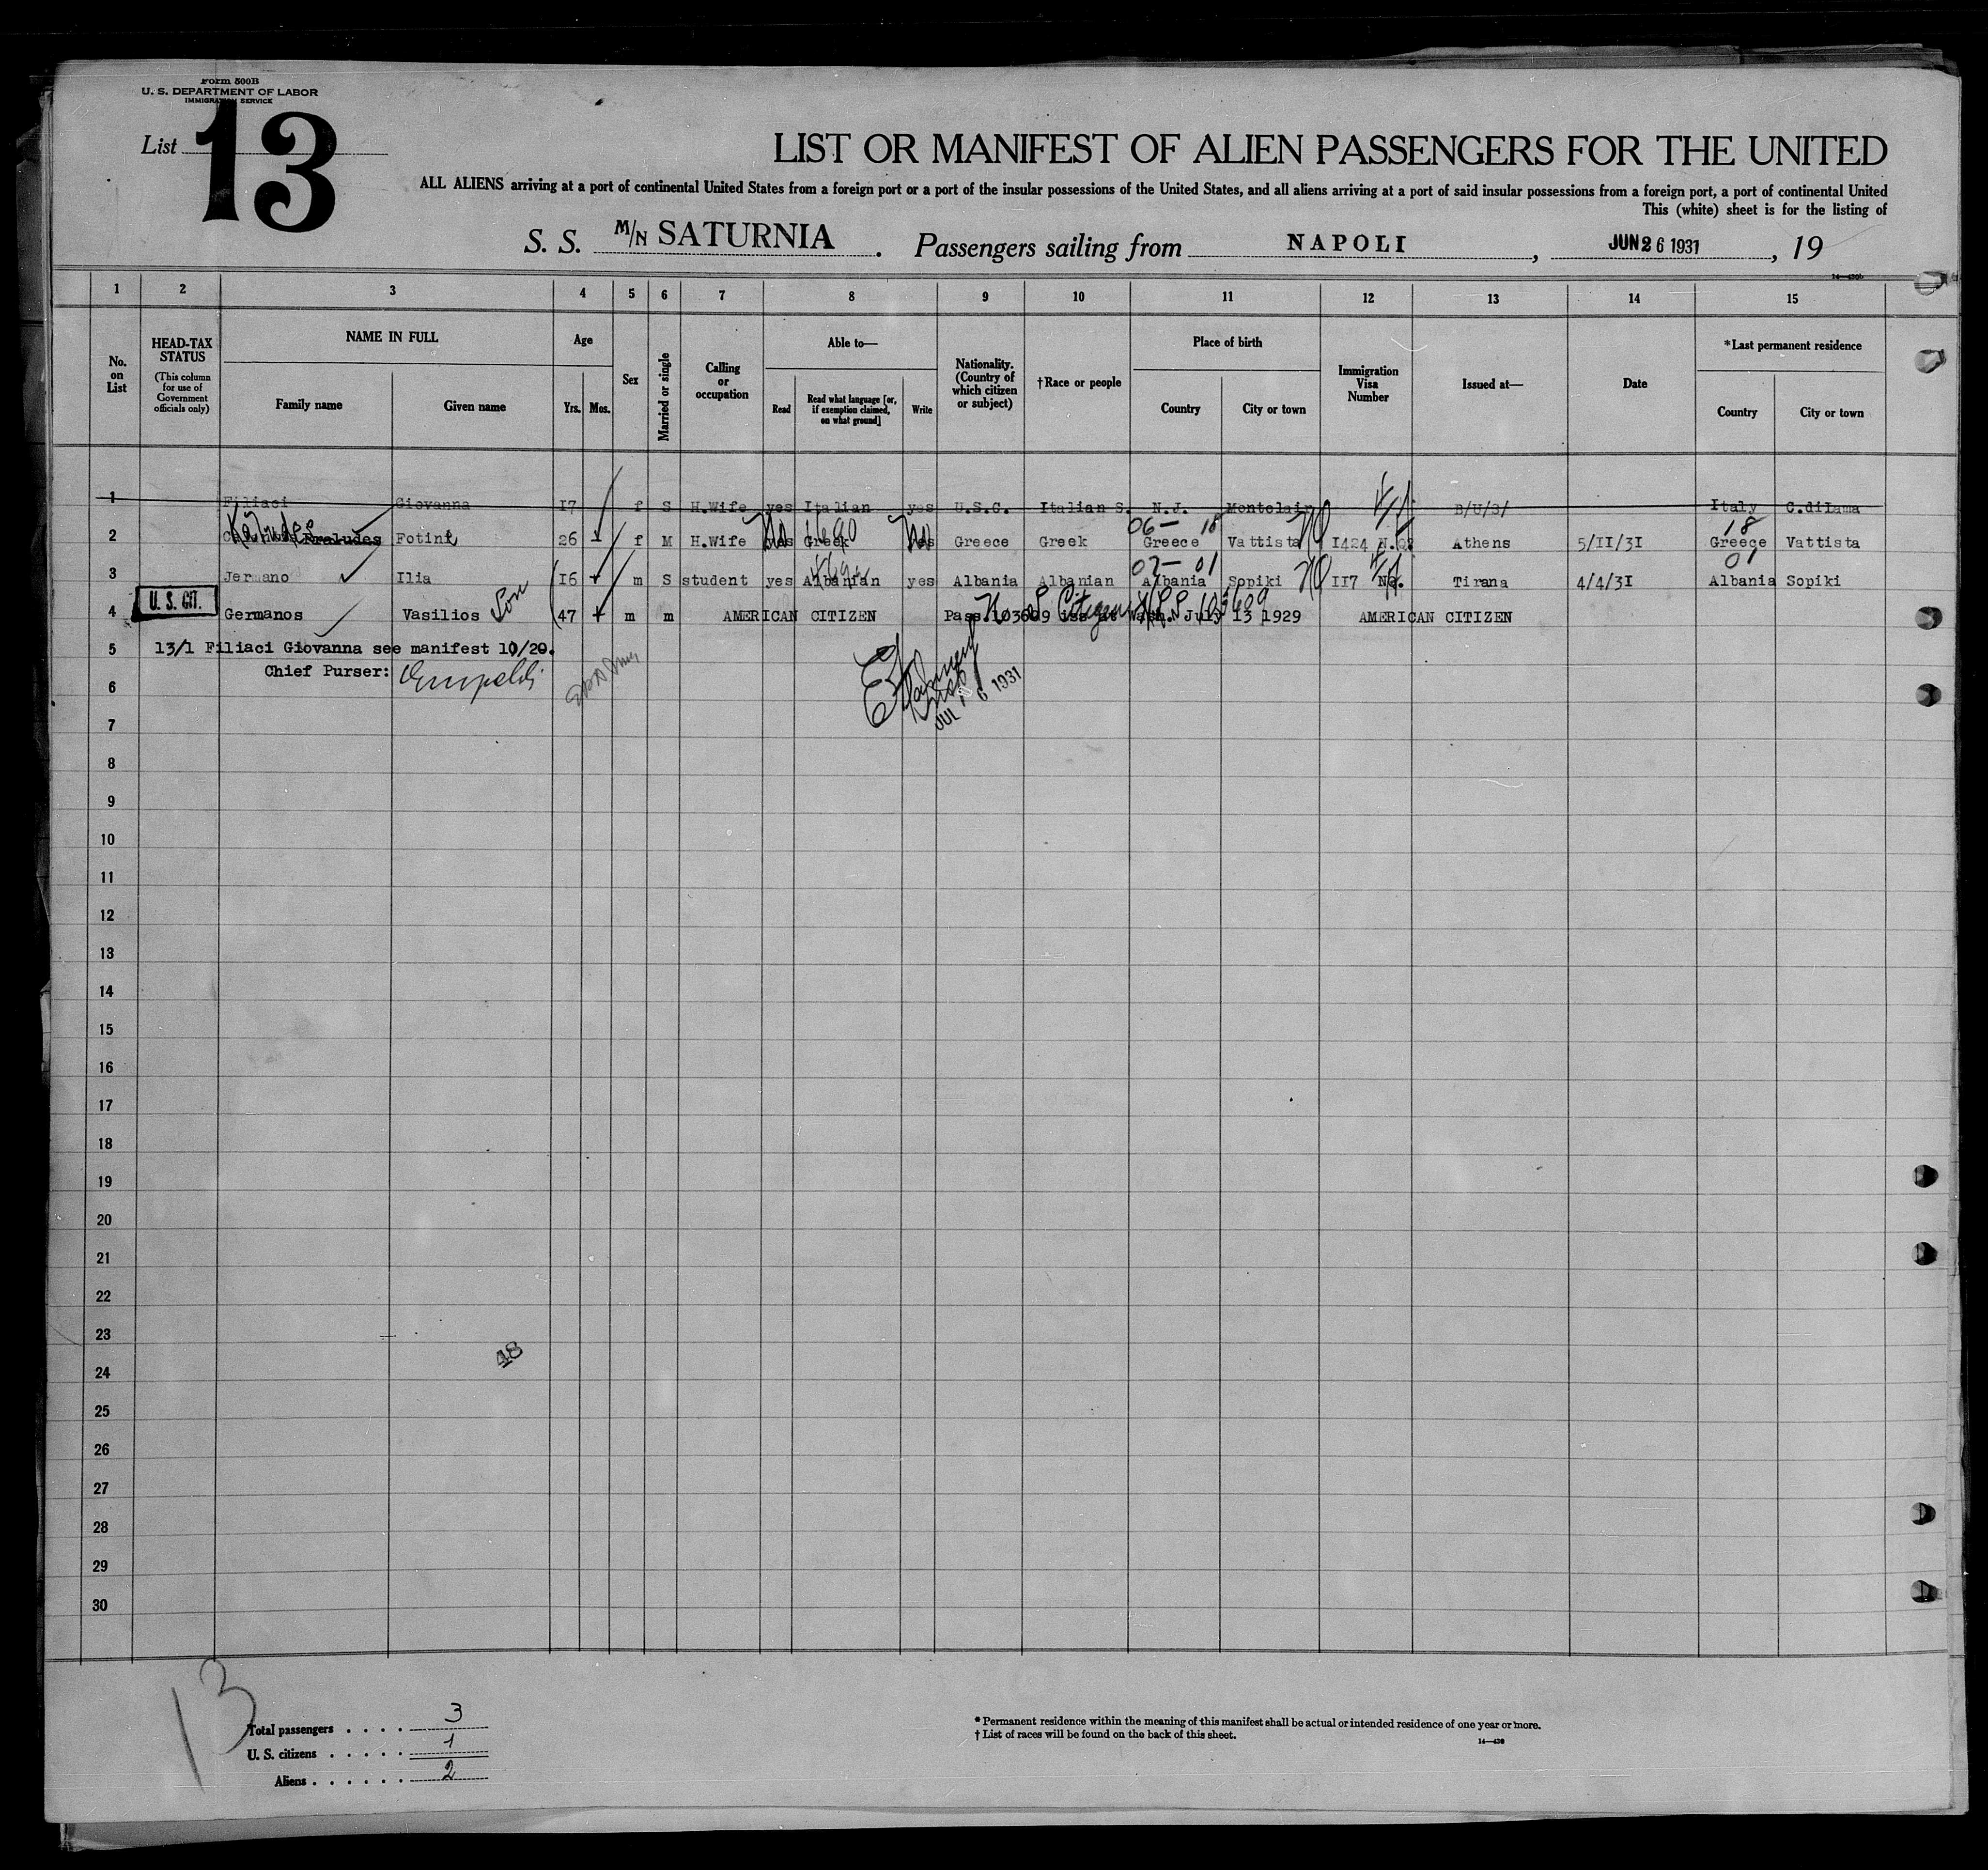 Form 500B
U. S. DEPARTMENT OF LABOR
IMMIGRATION SERVICE
List 13
LIST OR MANIFEST OF ALIEN PASSENGERS FOR THE UNITED
ALL ALIENS arriving at a port of continental United States from a foreign port or a port of the insular possessions of the United States, and all aliens arriving at a port of said insular possessions from a foreign port, a port of continental United
This (white) sheet is for the listing of
S. S. M/N SATURNIA. Passengers sailing from NAPOLI, JUN 26 1931, 19
1 2 3 4 5 6 7 8 9 10 11 12 13 14 15
No. on List
HEAD-TAX STATUS
(This column for use of Government officials only)
NAME IN FULL
Family name Given name
Age
Yrs. Mos.
Sex
Married or single
Calling or occupation
Able to—
Read
Read what language [or, if exemption claimed, on what ground]
Write
Nationality. (Country of which citizen or subject)
†Race or people
Place of birth
Country City or town
Immigration Visa Number
Issued at—
Date
*Last permanent residence
Country City or town
1 Filiaci Giovanna 17 f S H.Wife yes Italian yes U.S.C. Italian S. N.J. Montclair B/U/3/ Italy C.diLama
06— 18 18
2 Fotini 26 f M H.Wife No Greek No Greece Greek Greece Vattista 1424 Athens 5/II/31 Greece Vattista
02— 01 01
3 Jermano Ilia 16 m S student yes Albanian yes Albania Albanian Albania Sopiki 117 Tirana 4/4/31 Albania Sopiki
U. S. CIT.
4 Germanos Vasilios Son 47 m m AMERICAN CITIZEN Pass. 103609 iss at Wash. July 13 1929 AMERICAN CITIZEN
5 13/1 Filiaci Giovanna see manifest 10/20.
Chief Purser:
6
JUL 6 1931
7
8
9
10
11
12
13
14
15
16
17
18
19
20
21
22
23
48
24
25
26
27
28
29
30
13
Total passengers . . . . 3
U. S. citizens . . . . . 1
Aliens . . . . . . 2
* Permanent residence within the meaning of this manifest shall be actual or intended residence of one year or more.
† List of races will be found on the back of this sheet.